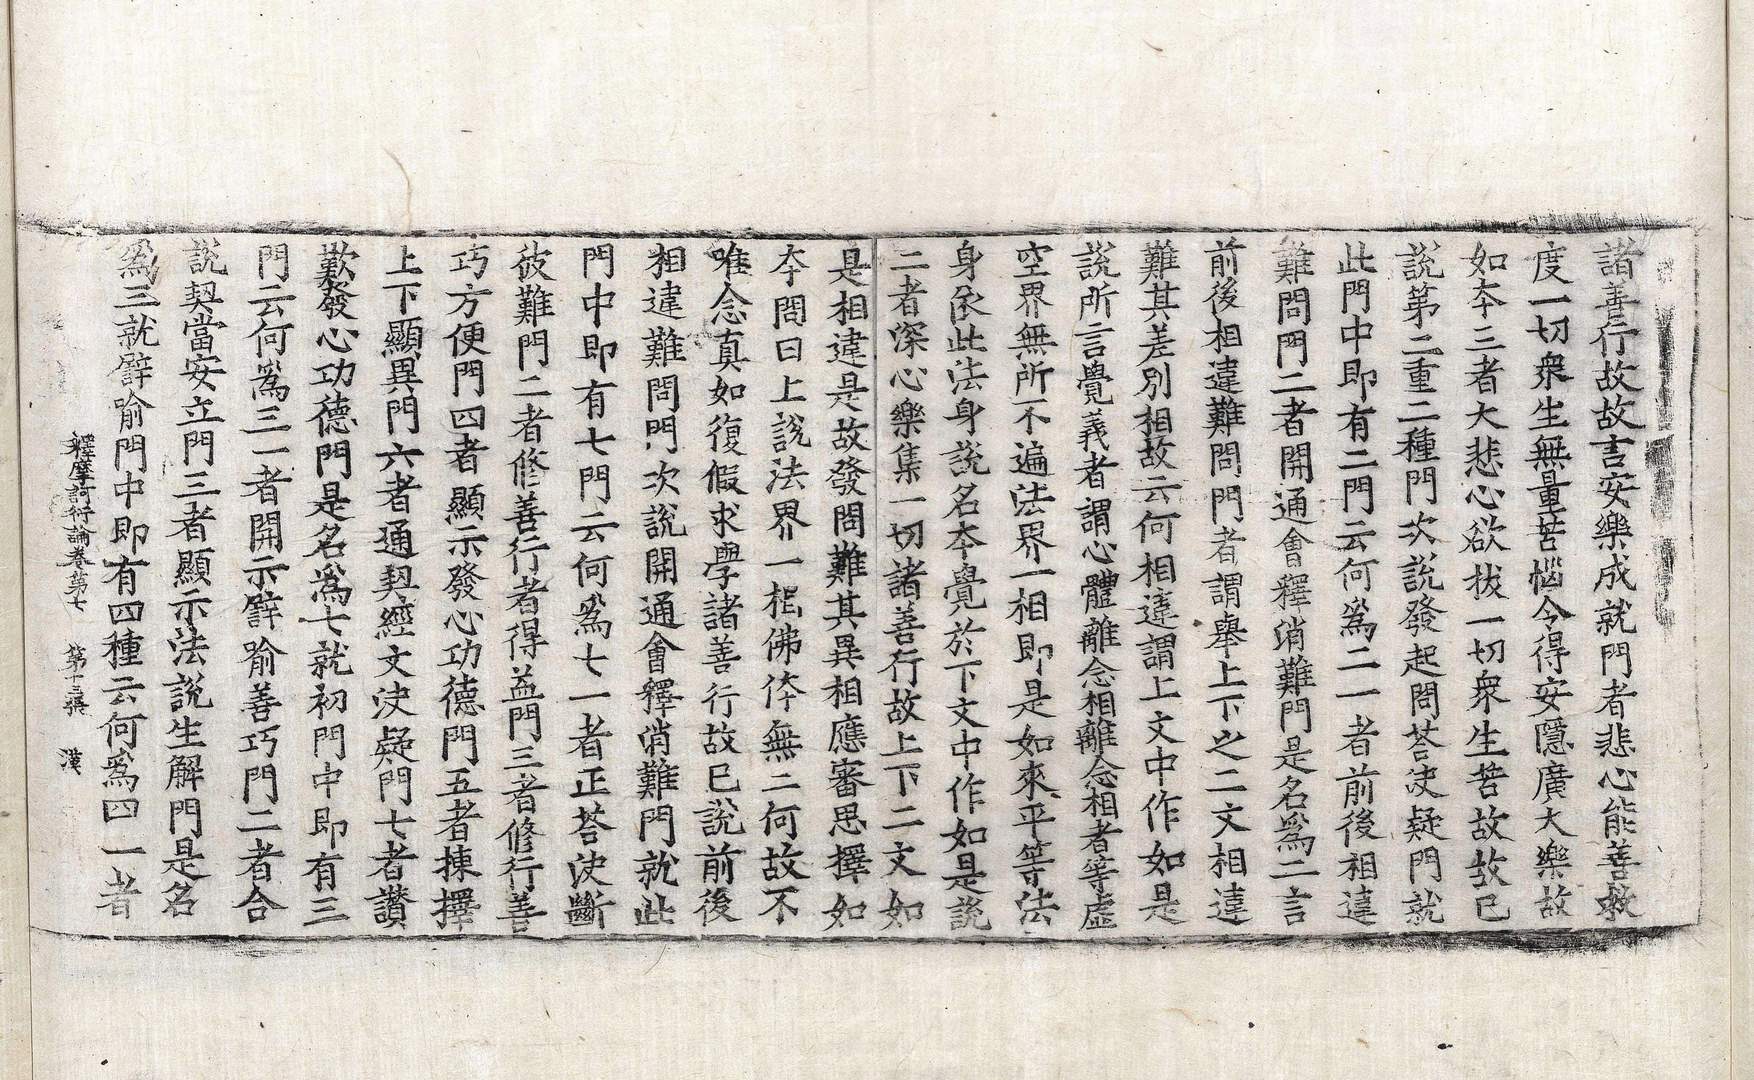 諸善行故故言安樂成就門者悲心能善救
度一切衆生無量苦惱令得安隱廣大樂故
如夲三者大悲心欲拔一切衆生苦故故已
說第二重二種門次說發起問荅决疑門就
此門中即有二門云何爲二一者前後相違
難問門二者開通會釋消難門是名爲二言
前後相違難問門者謂舉上下之二文相違
難其差別相故云何相違謂上文中作如是
說所言覺義者謂心體離念相離念相者等虛
空界無所不遍法界一相即是如來平等法
身依此法身說名夲覺於下文中作如是說
二者深心樂集一切諸善行故上下二文如
是相違是故發問難其異相應審思擇如
夲問曰上說法界一相佛体無二何故不
唯念真如復假求學諸善行故已說前後
相違難問門次說開通會釋消難門就此
門中即有七門云何爲七一者正荅决斷
彼難門二者修善行者得益門三者修行善
巧方便門四者顯示發心功德門五者揀擇
上下顯異門六者通契經文决疑門七者讚
歎發心功德門是名爲七就初門中即有三
門云何爲三一者開示譬喻善巧門二者合
說契當安立門三者顯示法說生解門是名
爲三就譬喻門中即有四種云何爲四一者
釋摩訶衍論卷第七 第十三張 漢